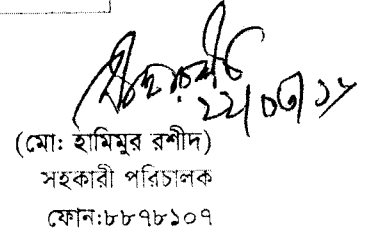 ২২/০৩/১৮
(মো: হামিমুর রশীদ)
সহকারী পরিচালক
ফোন:৮৮৭৮১০৭